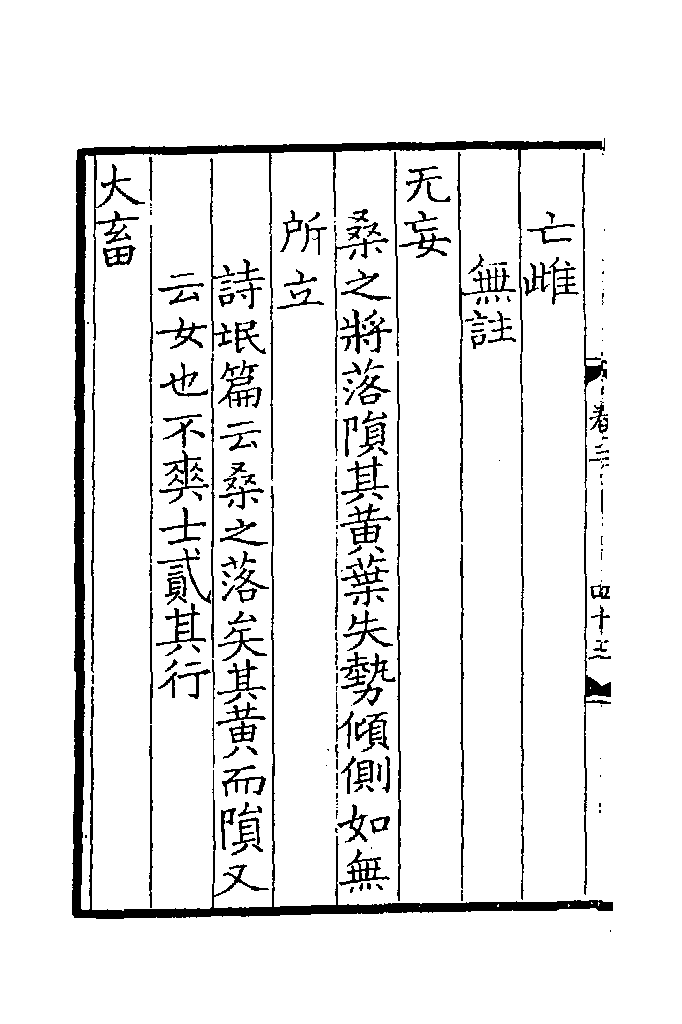 亡雌
無註
无妄
桑之將落隕其黃葉失勢傾側如無
所立
詩氓篇云桑之落矣其黃而隕又
云女也不爽士貳其行
大畜
卷三
四十三